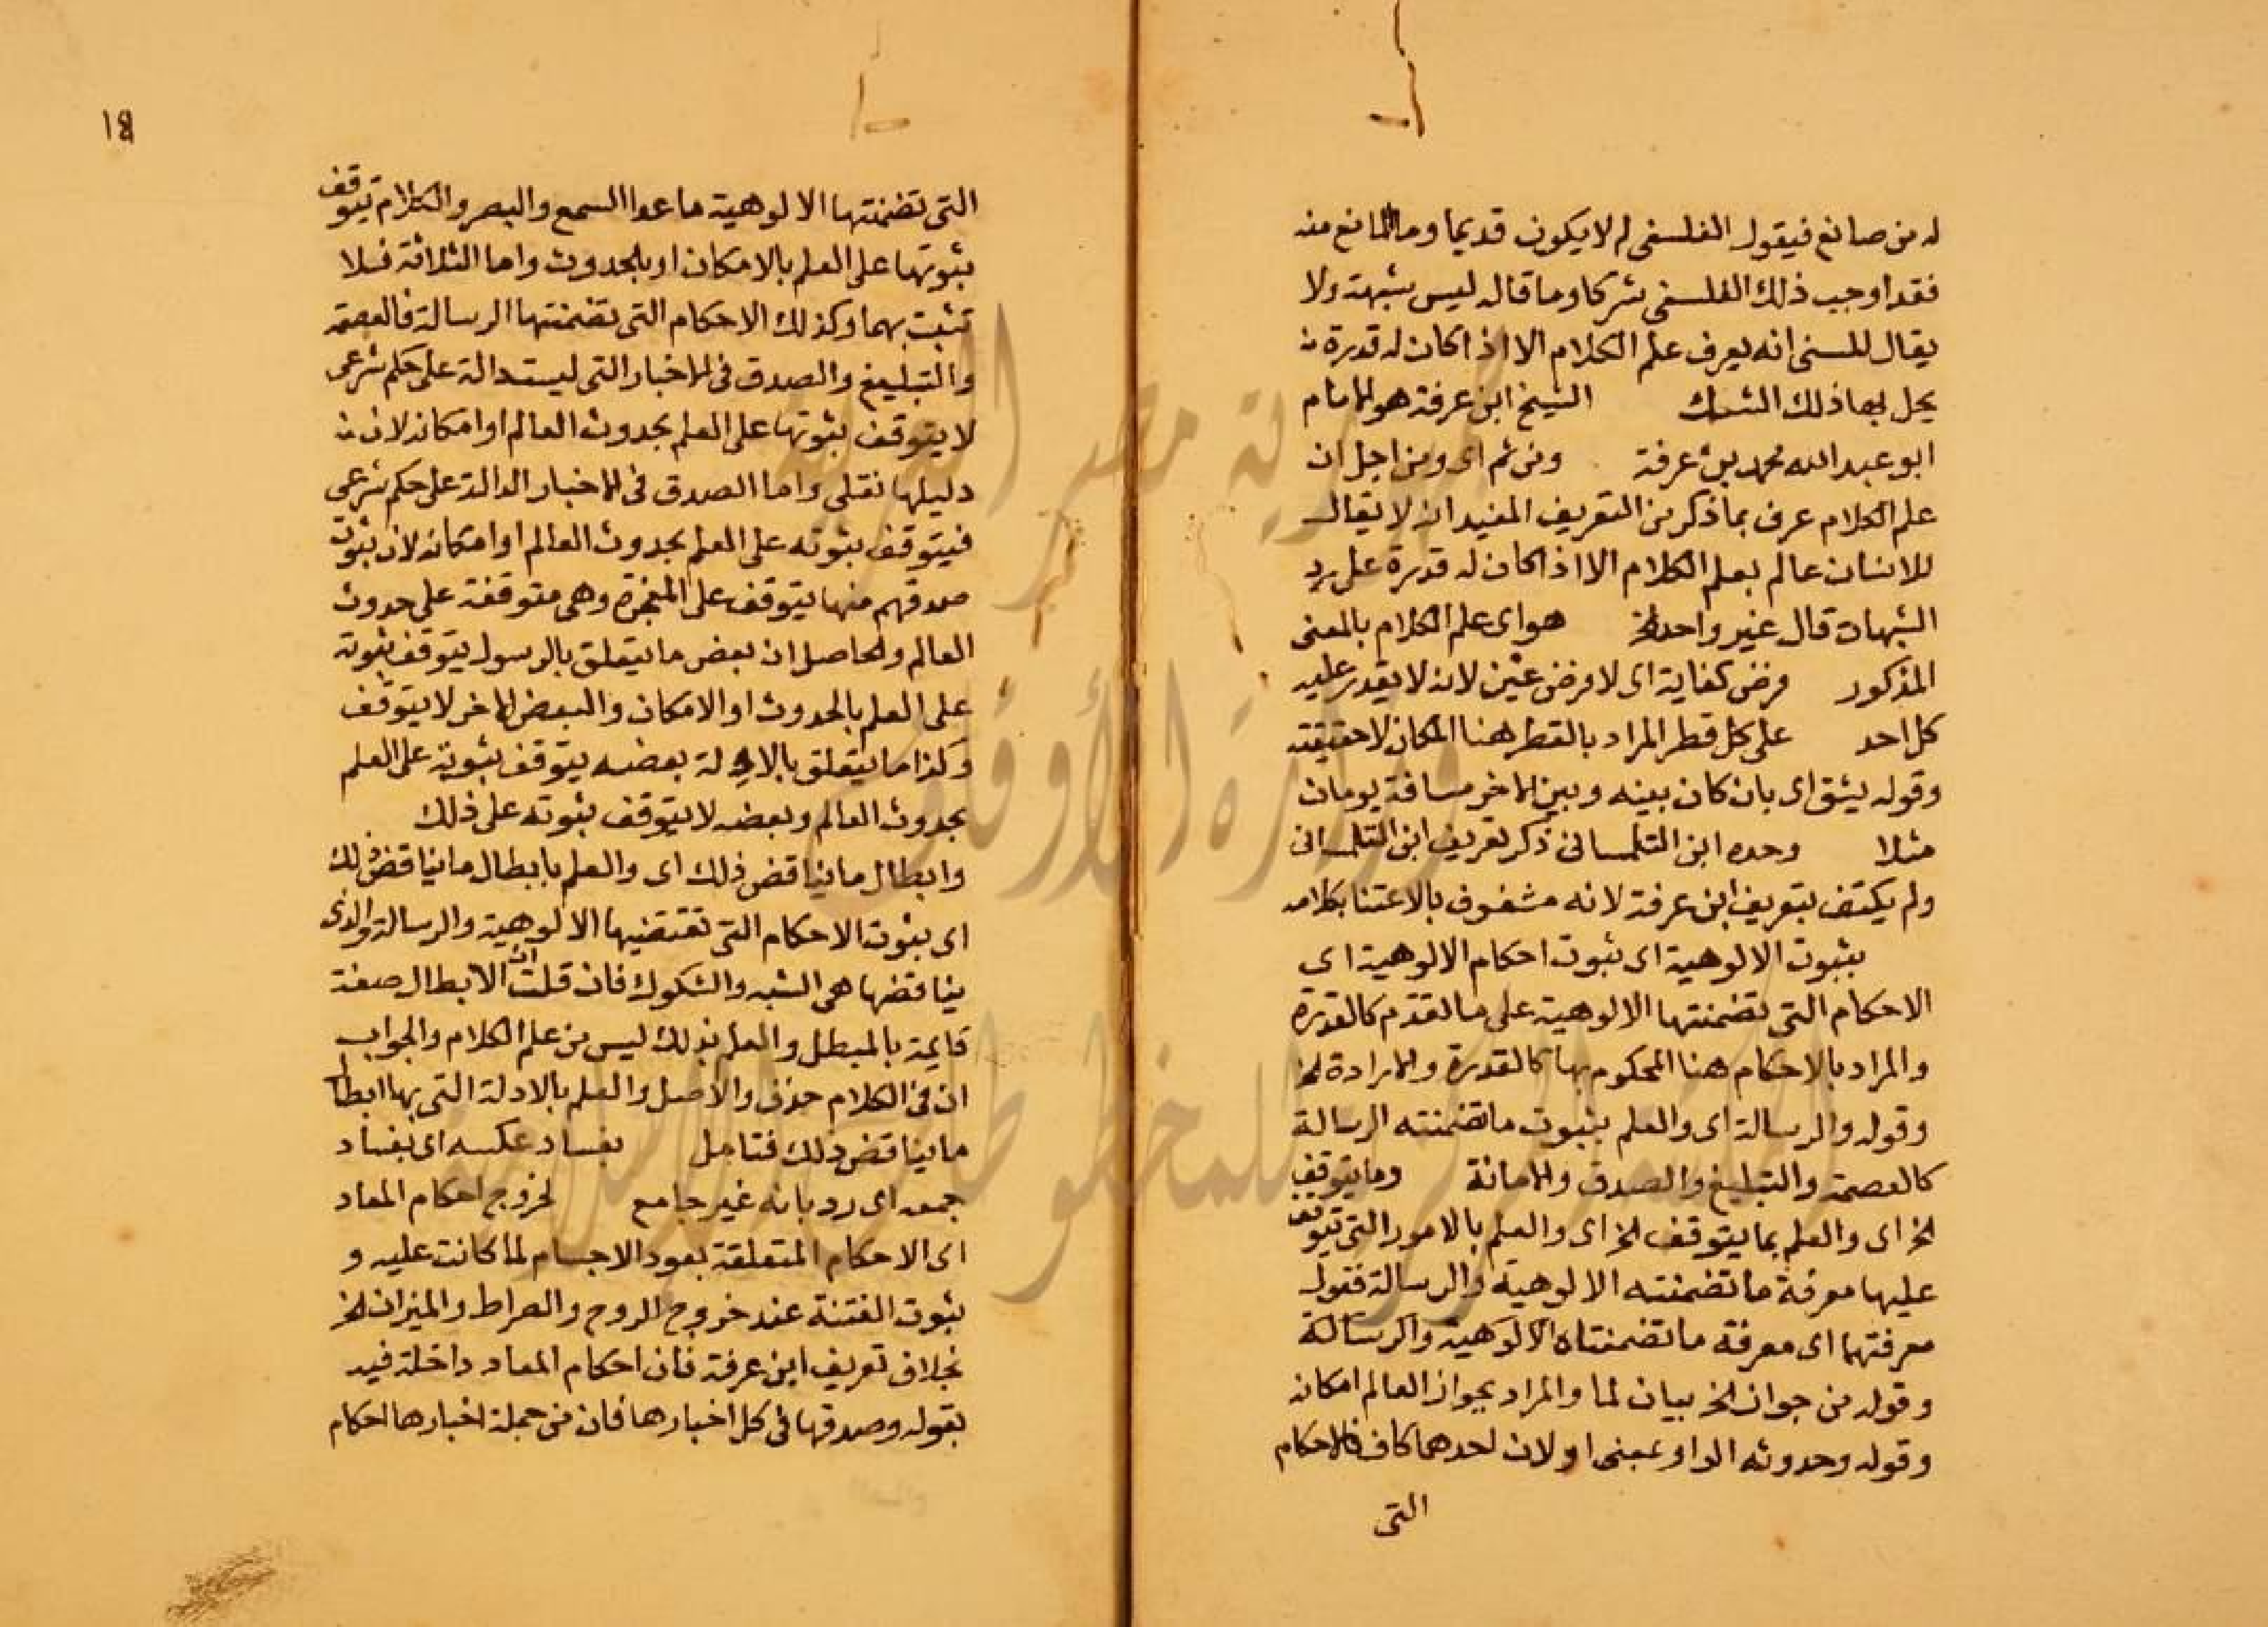 له من صانع فيقول الفلسفى لم لا يكون قديما وما المانع منه
فقد اوجب ذلك الفلسفى شركا وما قاله ليس بشبهة ولا
يقال للسنى انه يعرف علم الكلام الا اذا كان له قدرة
يحل بها ذلك الشك الشيخ ابن عرفة هو الامام
ابو عبد الله محمد بن عرفة ومن ثم اى ومن اجل ان
علم الكلام عرف بما ذكر من التعريف المفيد ان لا يقال
للانسان عالم بعلم الكلام الا اذا كان له قدرة على رد
الشبهات قال غير واحد الخ هو اى علم الكلام بالمعنى
المذكور فرض كفاية اى لا فرض عين لانه لا يقدر عليه
كل احد على كل قطر المراد بالقطر هنا المكان لا حقيقته
وقوله يشق اى بان كان بينه وبين الاخر مسافة يومان
مثلا وحده ابن التلمسانى ذكر تعريف ابن التلمسانى
ولم يكتف بتعريف ابن عرفة لانه مشغوف بالاعتنا بكلامه
بثبوت الالوهية اى ثبوت احكام الالوهية اى
الاحكام التى تضمنتها الالوهية على ما تقدم كالقدرة
والمراد بالاحكام هنا المحكوم بها كالقدرة والارادة الخ
وقوله والرسالة اى والعلم بثبوت ما تضمنته الرسالة
كالعصمة والتبليغ والصدق والامانة وما يتوقف
الخ اى والعلم بما يتوقف الخ اى والعلم بالامور التى يتوقف
عليها معرفة ما تضمنته الالوهية والرسالة فقوله
معرفتهما اى معرفة ما تضمنتاه الالوهية والرسالة
وقوله من جواز الخ بيان لما والمراد بجواز العالم امكانه
وقوله وحدوثه الواو بمعنى او لان احدهما كاف فالاحكام
التى
١٤
التى تضمنتها الالوهية ما عدا السمع والبصر والكلام يتوقف
ثبوتها على العلم بالامكان او بالحدوث واما الثلاثة فلا
تثبت بهما وكذلك الاحكام التى تضمنتها الرسالة فالعصمة
والتبليغ والصدق فى الاخبار التى ليست دالة على حكم شرعى
لا يتوقف ثبوتها على العلم بحدوث العالم او امكانه لان
دليلها نقلى واما الصدق فى الاخبار الدالة على حكم شرعى
فيتوقف ثبوته على العلم بحدوث العالم او امكانه لان ثبوت
صدقهم منها يتوقف على المعجزة وهى متوقفة على حدوث
العالم والحاصل ان بعض ما يتعلق بالرسول يتوقف ثبوته
على العلم بالحدوث او الامكان والبعض الاخر لا يتوقف
وكذا ما يتعلق بالاله بعضه يتوقف ثبوته على العلم
بحدوث العالم وبعضه لا يتوقف ثبوته على ذلك
وابطال ما يناقض ذلك اى والعلم بابطال ما يناقض ذلك
اى بثبوت الاحكام التى تقتضيها الالوهية والرسالة والذى
يناقضها هى الشبه والشكوك فان قلت ان الابطال صفة
قايمة بالمبطل والعلم بذلك ليس من علم الكلام والجواب
ان فى الكلام حذف والاصل والعلم بالادلة التى بها ابطال
ما يناقض ذلك فتامل بفساد عكسه اى بفساد
جمعه اى رد بانه غير جامع لخروج احكام المعاد
اى الاحكام المتعلقة بعود الاجسام لما كانت عليه و
ثبوت الفتنة عند خروج الروح والصراط والميزان الخ
بخلاف تعريف ابن عرفة فان احكام المعاد داخلة فيه
بقوله وصدقها فى كل اخبارها فان من جملة اخبارها احكام